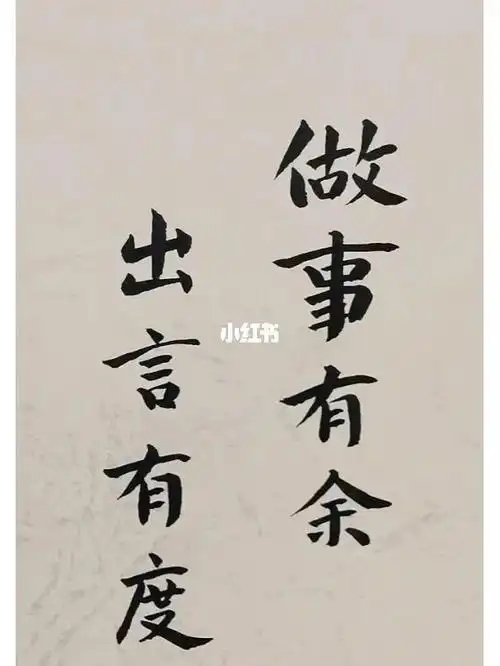 做事有余
出言有度
小红书